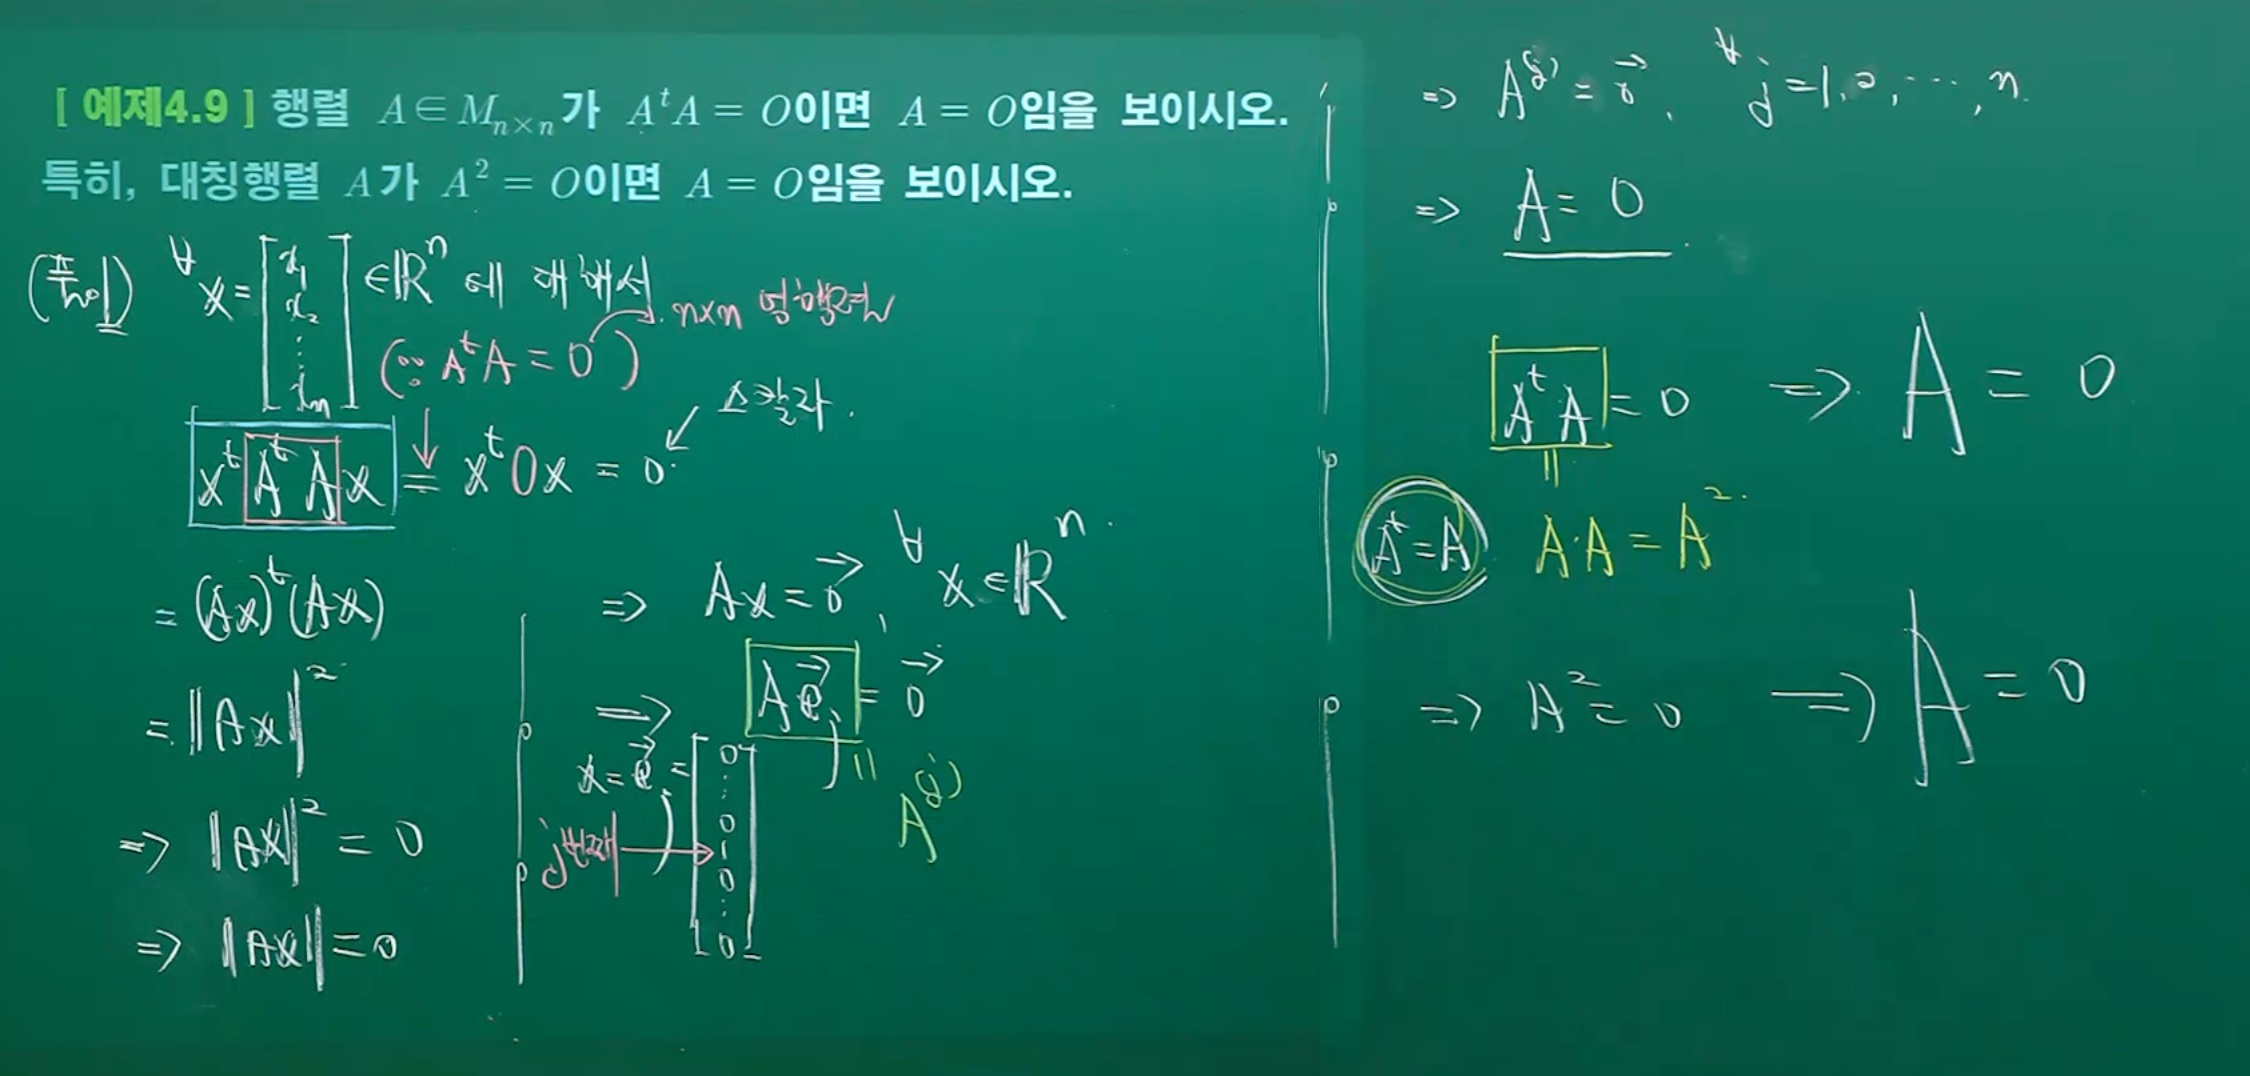 [ 예제4.9 ] 행렬 A∈M_{n×n}가 A^tA = O이면 A = O임을 보이시오.
특히, 대칭행렬 A가 A^2 = O이면 A = O임을 보이시오.
(풀이) ∀x = [x_1 x_2 ⋮ x_n] ∈ℝ^n 에 대해서
(∵ A^tA = 0) n×n 영행렬
x^t A^t A x = x^t 0 x = 0 ← 스칼라.
= (Ax)^t(Ax)
= ‖Ax‖^2
⇒ ‖Ax‖^2 = 0
⇒ ‖Ax‖ = 0
⇒ Ax = 0⃗, ∀x∈ℝ^n.
⇒ Ae⃗_j = 0⃗
x = e⃗_j = [0 ⋮ 0 1 0 ⋮ 0]
j번째 →
= A^{(j)}
⇒ A^{(j)} = 0⃗, ∀j = 1, 2, ⋯, n.
⇒ A = 0
A^t A = 0 ⇒ A = 0
A^t = A
A·A = A^2
⇒ A^2 = 0 ⇒ A = 0